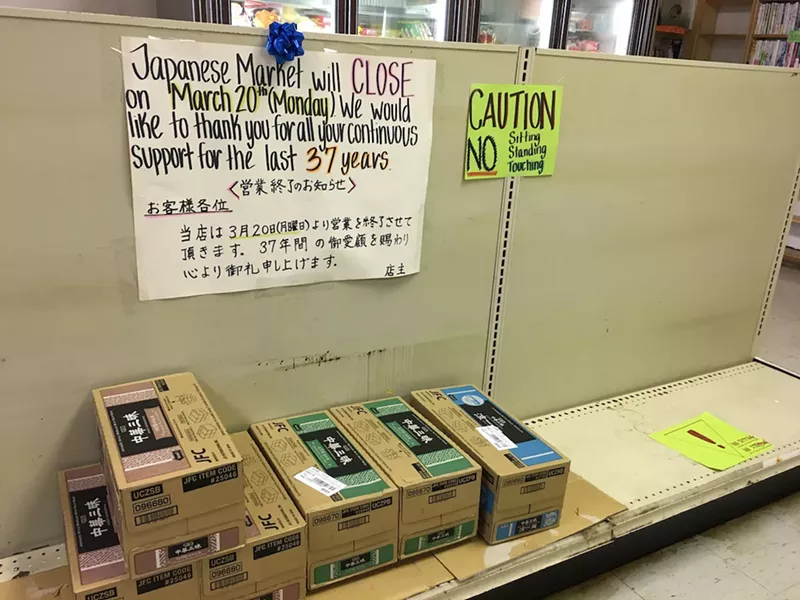 Japanese Market will CLOSE
on March 20th (Monday). We would
like to thank you for all your continuous
support for the last 37 years.
<営業終了のお知らせ>
お客様各位
当店は3月20日(月曜日)より営業を終了させて
頂きます。37年間の御愛顧を賜わり
心より御礼申し上げます。
店主
CAUTION
NO
Sitting
Standing
Touching
中華三昧
JFC
JFC ITEM CODE
#25046
UCZSB
096680
中華三昧
中華三昧
UCZSB
096680
JFC ITEM CODE
#25046
JFC
JFC ITEM CODE
#25046
JFC
中華三昧
096670
UCZPB
中華三昧
JFC
中華三昧
096670
UCZPB
中華三昧
JFC
096690